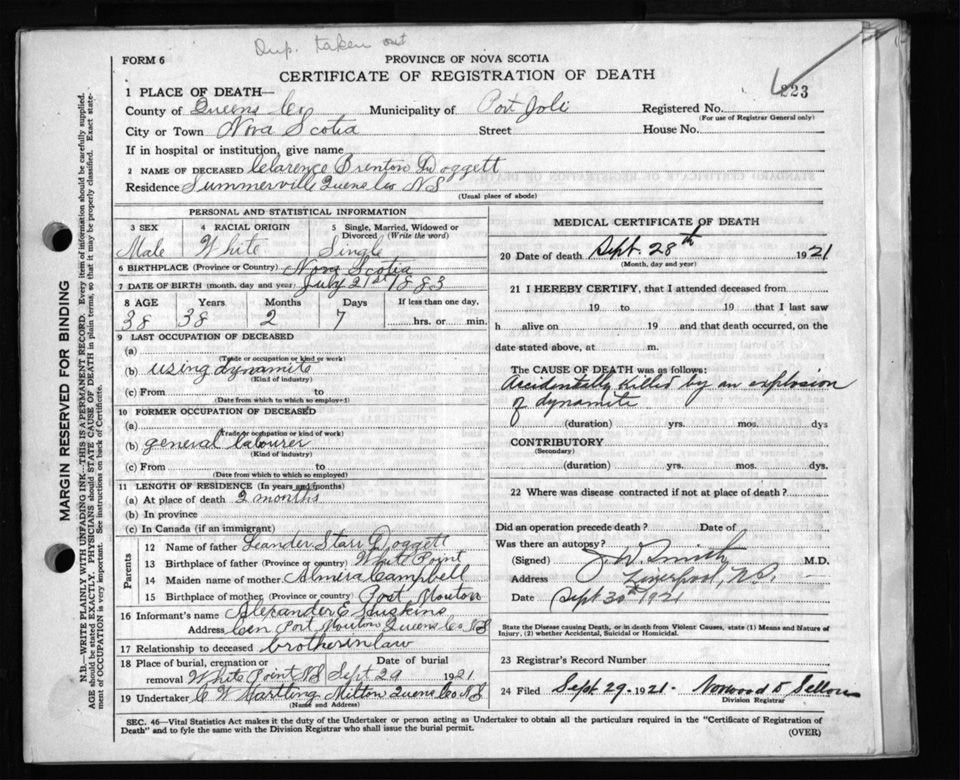 Dup. taken out
FORM 6
PROVINCE OF NOVA SCOTIA
CERTIFICATE OF REGISTRATION OF DEATH
223
1 PLACE OF DEATH—
County of Queens Co Municipality of Port Joli Registered No.
(For use of Registrar General only)
City or Town Nova Scotia Street House No.
If in hospital or institution, give name
2 NAME OF DECEASED Clarence Brenton Doggett
Residence Summerville Queens Co NS
(Usual place of abode)
PERSONAL AND STATISTICAL INFORMATION
3 SEX 4 RACIAL ORIGIN 5 Single, Married, Widowed or Divorced (Write the word)
Male White Single
6 BIRTHPLACE (Province or Country) Nova Scotia
7 DATE OF BIRTH (month, day and year) July 21st 1883
8 AGE Years Months Days If less than one day,
38 38 2 7 hrs. or min.
9 LAST OCCUPATION OF DECEASED
(a)
(Trade or occupation or kind or work)
(b) using dynamite
(Kind of industry)
(c) From to
(Date from which to which so employed)
10 FORMER OCCUPATION OF DECEASED
(a)
(Trade or occupation or kind of work)
(b) general labourer
(Kind of industry)
(c) From to
(Date from which to which so employed)
11 LENGTH OF RESIDENCE (In years and months)
(a) At place of death 2 months
(b) In province
(c) In Canada (if an immigrant)
Parents
12 Name of father Leander Starr Doggett
13 Birthplace of father (Province or country) White Point
14 Maiden name of mother Almira Campbell
15 Birthplace of mother (Province or country) Port Mouton
16 Informant's name Alexander C Huskins
Address Cen Port Mouton Queens Co NS
17 Relationship to deceased brother in law
18 Place of burial, cremation or removal White Point NS Date of burial Sept 29 1921
19 Undertaker C W Hartling Milton Quens Co NS
(Name and Address)
MEDICAL CERTIFICATE OF DEATH
20 Date of death Sept. 28th 1921
(Month, day and year)
21 I HEREBY CERTIFY, that I attended deceased from
19 to 19 that I last saw
h alive on 19 and that death occurred, on the
date stated above, at m.
The CAUSE OF DEATH was as follows:
Accidentally killed by an explosion
of dynamite
(duration) yrs. mos. dys
CONTRIBUTORY
(Secondary)
(duration) yrs. mos. dys.
22 Where was disease contracted if not at place of death?
Did an operation precede death? Date of
Was there an autopsy?
(Signed) J. W. Smith M.D.
Address Liverpool, N.S.
Date Sept 30th 1921
State the Disease causing Death, or in death from Violent Causes, state (1) Means and Nature of
Injury, (2) whether Accidental, Suicidal or Homicidal.
23 Registrar's Record Number
24 Filed Sept. 29. 1921. Norwood D Sellon
Division Registrar
SEC. 46—Vital Statistics Act makes it the duty of the Undertaker or person acting as Undertaker to obtain all the particulars required in the "Certificate of Registration of
Death" and to fyle the same with the Division Registrar who shall issue the burial permit.
(OVER)
MARGIN RESERVED FOR BINDING
N.B.—WRITE PLAINLY WITH UNFADING INK—THIS IS A PERMANENT RECORD. Every item of information should be carefully supplied.
AGE should be stated EXACTLY. PHYSICIANS should STATE CAUSE OF DEATH in plain terms, so that it may be properly classified. Exact state-
ment of OCCUPATION is very important. See instructions on back of Certificate.